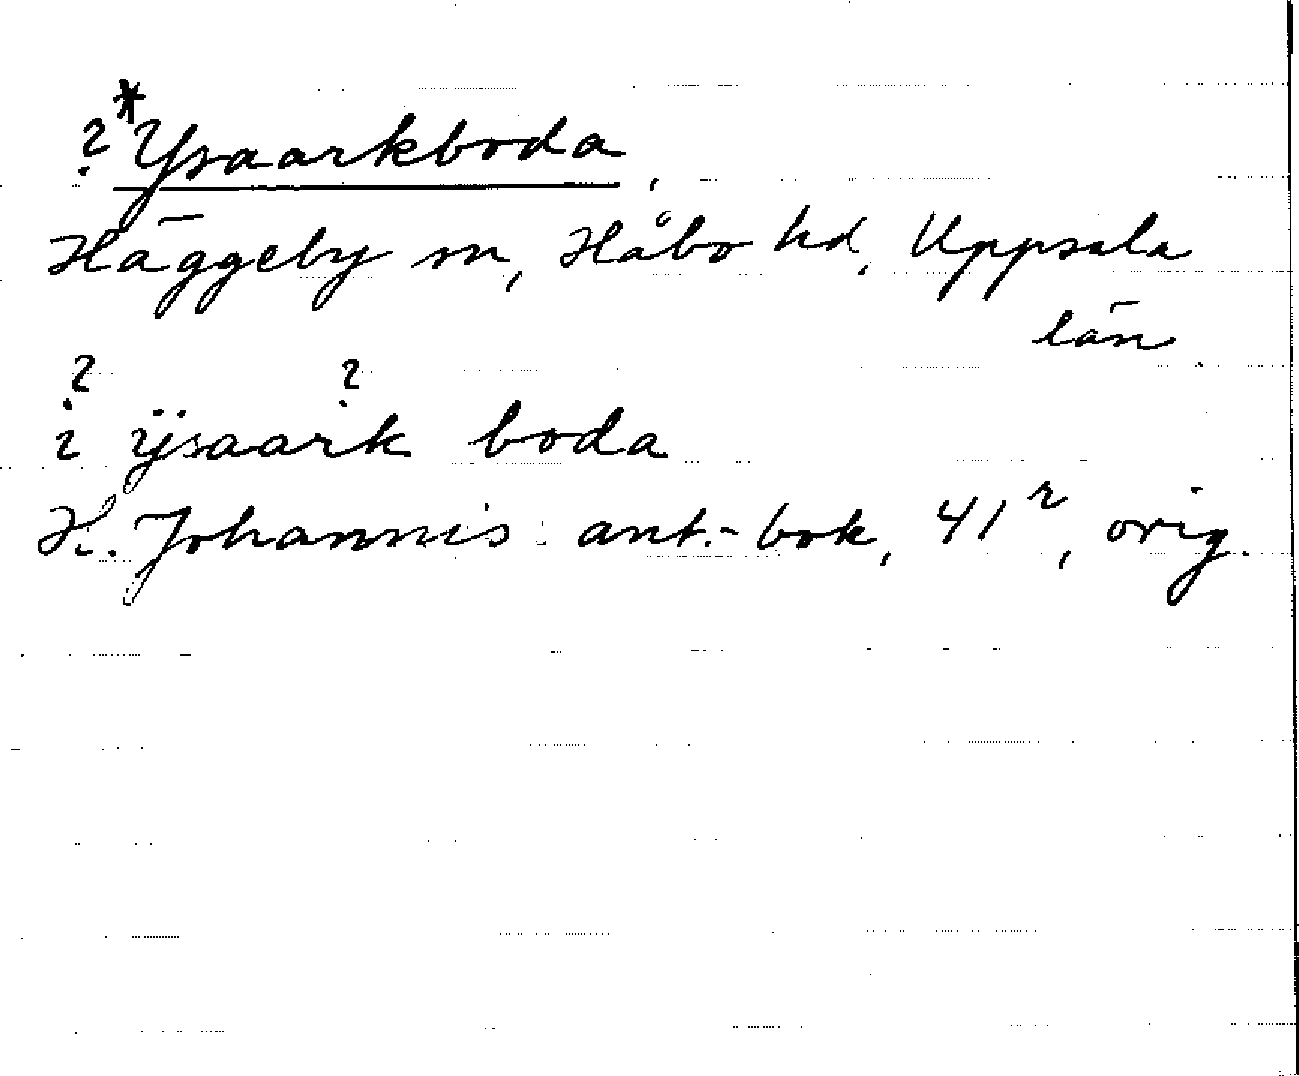 ?*Ysaarkboda,
Häggeby sn, Håbo hd, Uppsala
län.
? ?
i ÿsaark boda
K. Johannis ant.-bok, 41r, orig.